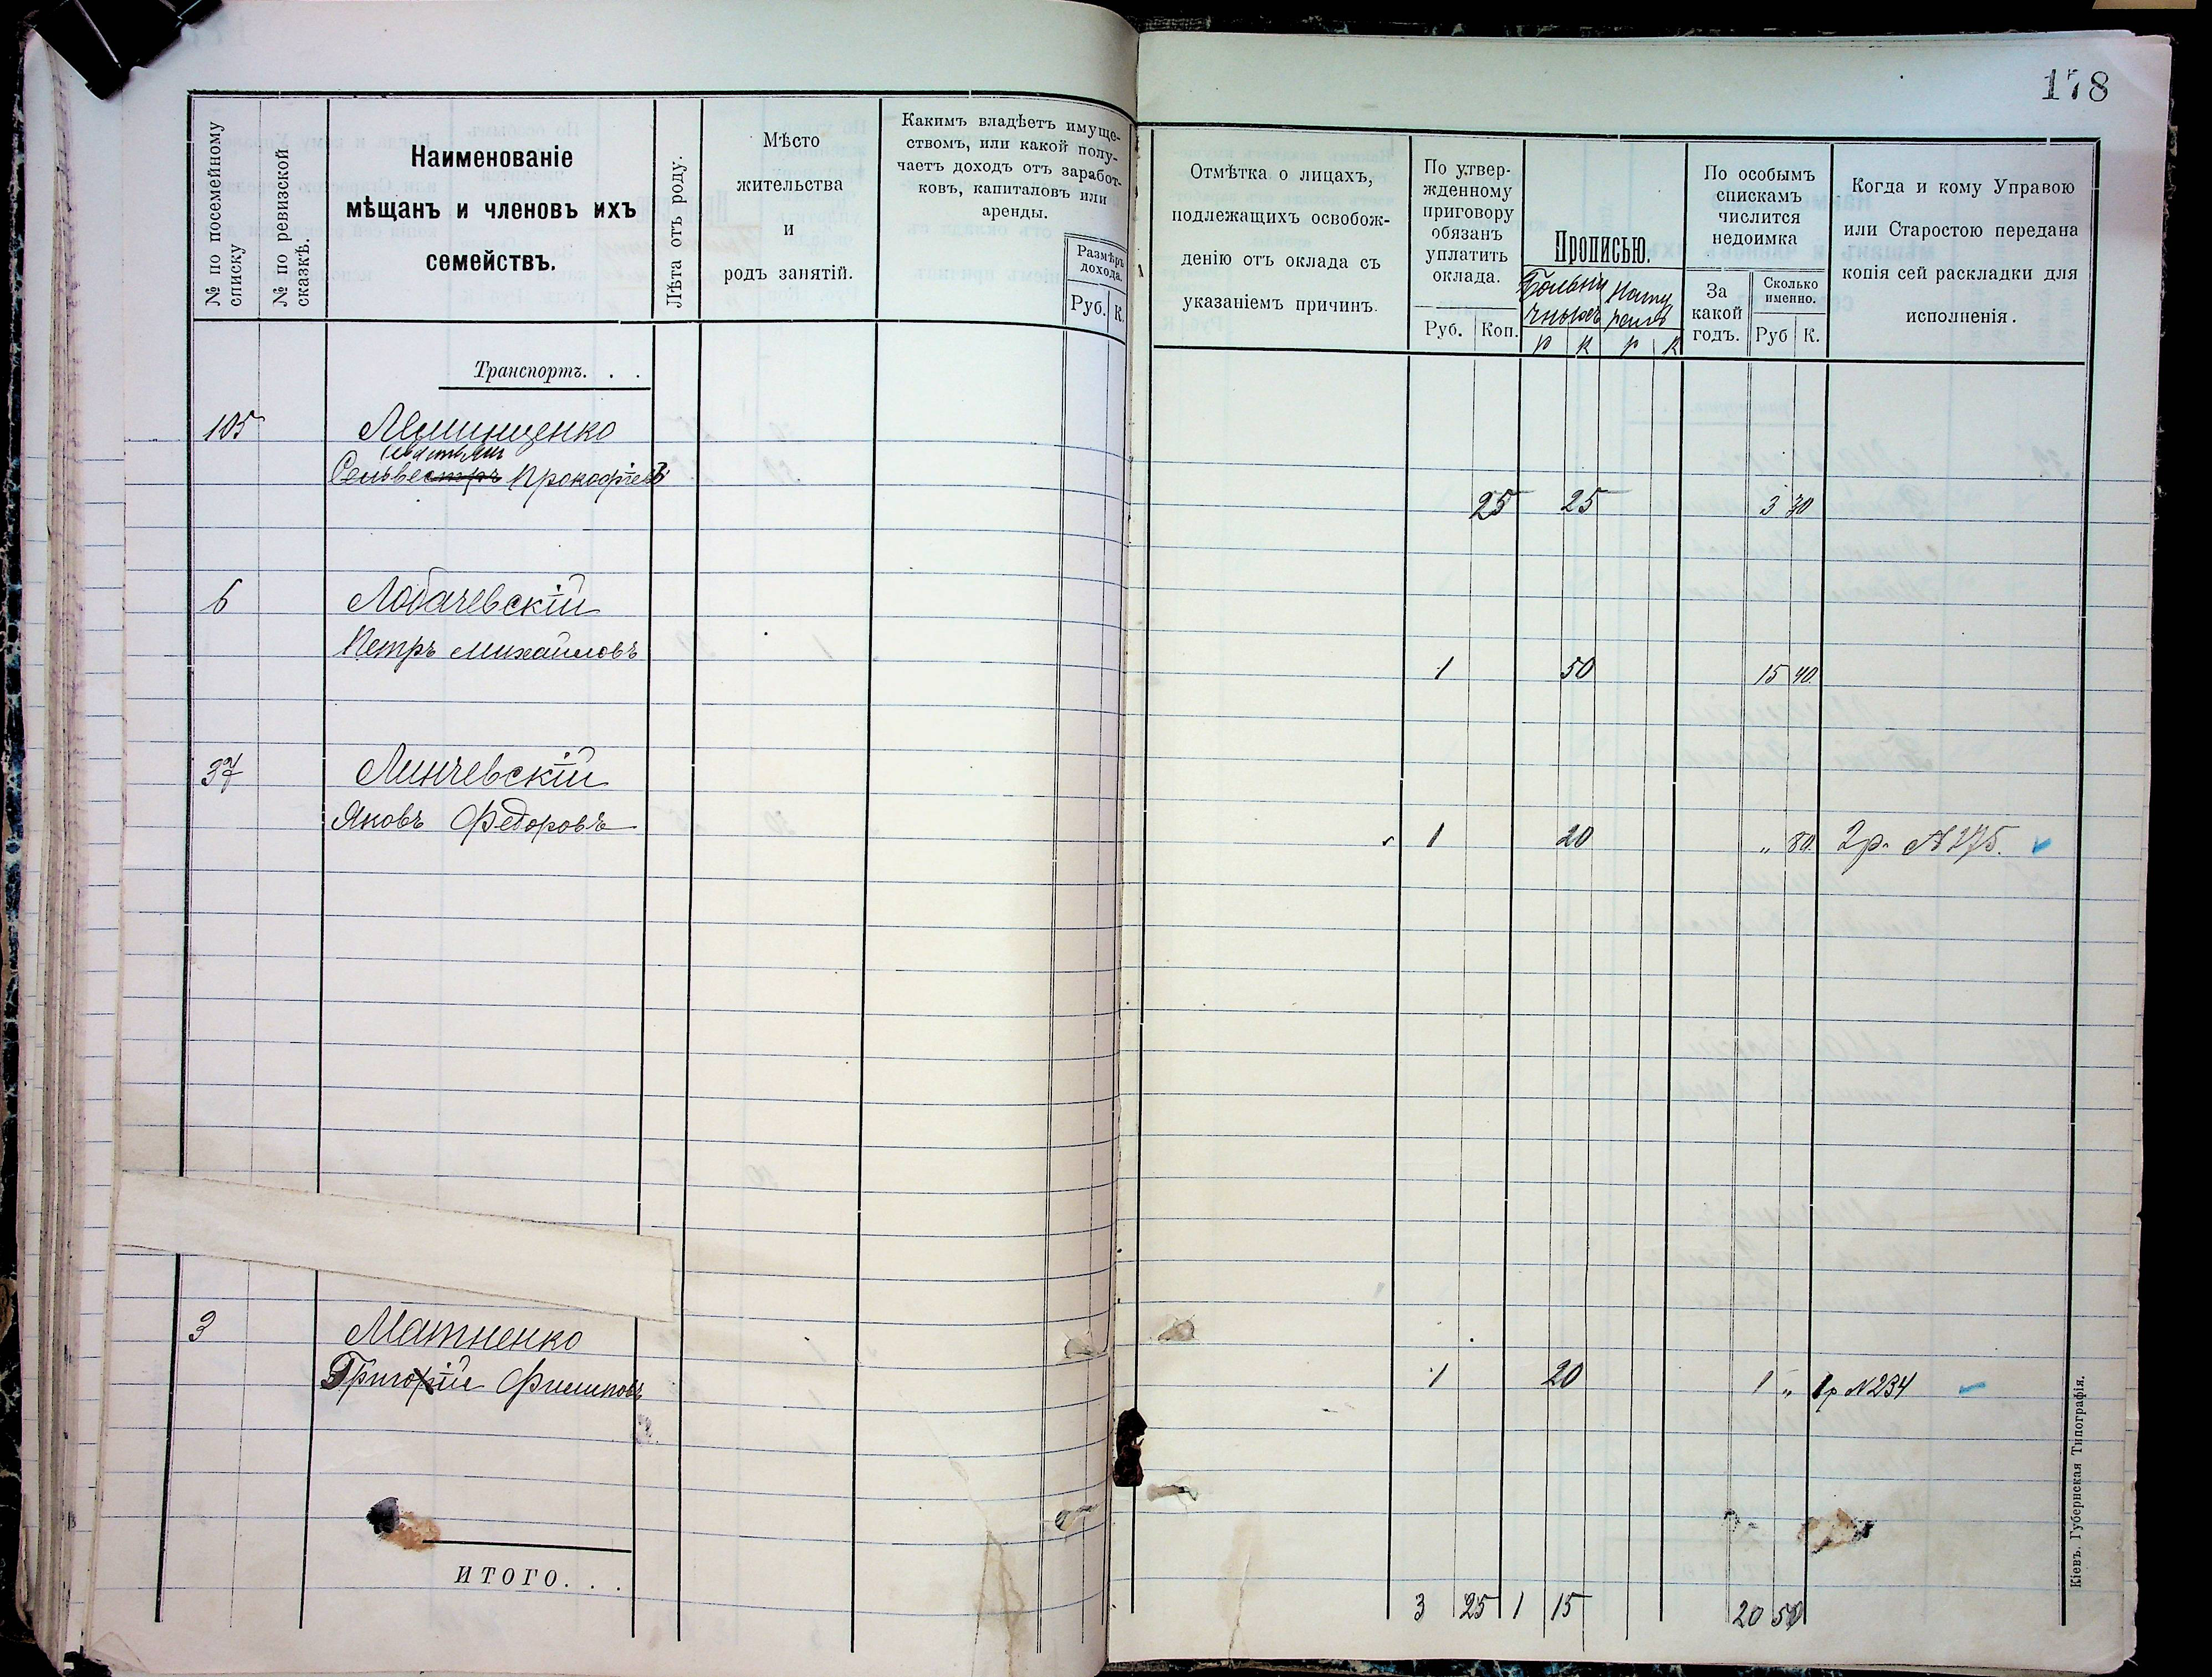 178
№ по посемейному списку
№ по ревизской сказкѣ.
Наименованіе
мѣщанъ и членовъ ихъ
семействъ.
Лѣта отъ роду.
Мѣсто
жительства
и
родъ занятій.
Какимъ владѣетъ имуще-
ствомъ, или какой полу-
чаетъ доходъ отъ заработ-
ковъ, капиталовъ или
аренды.
Размѣръ
дохода.
Руб. К.
Отмѣтка о лицахъ,
подлежащихъ освобож-
денію отъ оклада съ
указаніемъ причинъ.
По утвер-
жденному
приговору
обязанъ
уплатить
оклада.
Руб. Коп.
Прописью.
Больни
чныхъ
р к р к
По особымъ
спискамъ
числится
недоимка
За
какой
годъ.
Сколько
именно.
Руб К.
Когда и кому Управою
или Старостою передана
копія сей раскладки для
исполненія.
Транспортъ. . .
105
Прокофіевъ
25 25 3 30
6 Лобачевскій
Петръ Михайловъ
1 50 15 40
37 Линчевскій
Яковъ Федоровъ
1 20 „ 80. 2р. №275.
3 Матненко
Григорій Филиповъ
1 20 1 „ 1р №234
ИТОГО. . .
3 25 1 15 20 50
Кіевъ. Губернская Типографія.